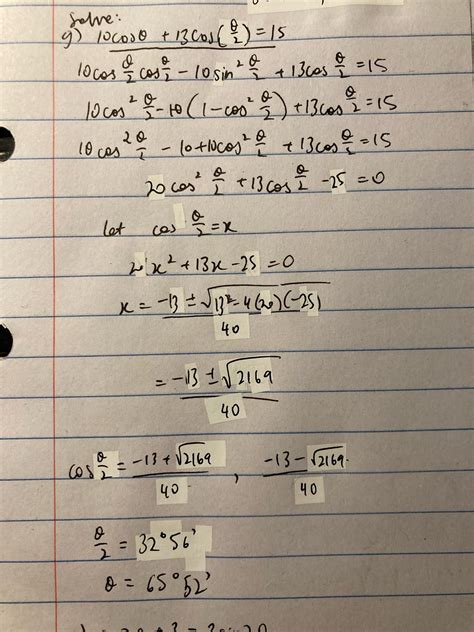 Solve:
g) 10cosθ + 13cos(θ/2) = 15
10cos θ/2 cos θ/2 - 10sin² θ/2 + 13cos θ/2 = 15
10cos² θ/2 - 10(1-cos² θ/2) + 13cos θ/2 = 15
10cos² θ/2 - 10+10cos² θ/2 + 13cos θ/2 = 15
20cos² θ/2 + 13cos θ/2 - 25 = 0
let cos θ/2 = x
2 x² + 13x - 25 = 0
x = (-13 ± √(13² - 4(20)(-25)))/40
= (-13 ± √2169)/40
cos θ/2 = (-13 + √2169)/40 , (-13 - √2169)/40
θ/2 = 32°56'
θ = 65°52'